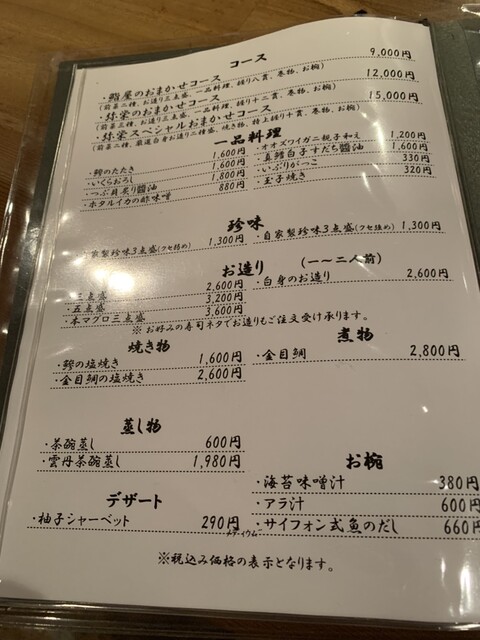 コース
・鮨屋のおまかせコース 9,000円
(前菜二種、お造り三点盛、一品料理、握り八貫、巻物、お椀)
・弥栄のおまかせコース 12,000円
(前菜三種、お造り三点盛、一品料理、握り十二貫、巻物、お椀)
・弥栄スペシャルおまかせコース 15,000円
(前菜二種、厳選白身お造り二種盛、焼き物、特上握り十貫、巻物、お椀)
一品料理
・鯵のたたき 1,600円
・いくらおろし 1,600円
・つぶ貝炙り醤油 1,800円
・ホタルイカの酢味噌 880円
・オオズワイガニ親子和え 1,200円
・真鱈白子すだち醬油 1,600円
・いぶりがっこ 330円
・玉子焼き 320円
珍味
自家製珍味3点盛(クセ弱め) 1,300円
・自家製珍味3点盛(クセ強め) 1,300円
お造り (一〜二人前)
・三点盛 2,600円
・五点盛 3,200円
・本マグロ三点盛 3,600円
・白身のお造り 2,600円
※お好みの寿司ネタでお造りもご注文受け承ります。
焼き物
・鯵の塩焼き 1,600円
・金目鯛の塩焼き 2,600円
煮物
・金目鯛 2,800円
蒸し物
・茶碗蒸し 600円
・雲丹茶碗蒸し 1,980円
デザート
・柚子シャーベット 290円
お椀
・海苔味噌汁 380円
・アラ汁 600円
・サイフォン式魚のだし 660円
※税込み価格の表示となります。